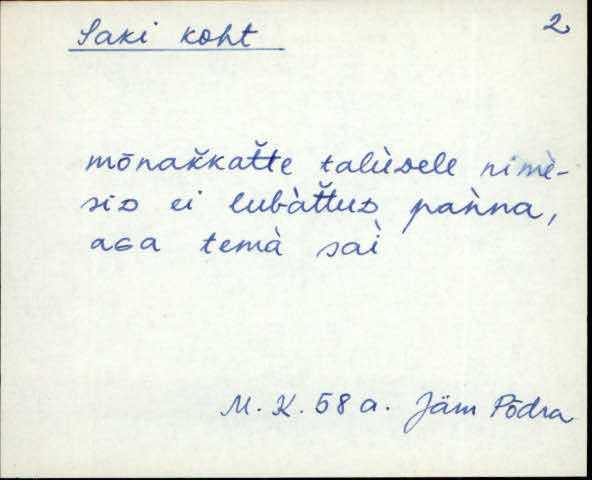 Saki koht 2
mōnak̆kat̆te talùᴅele nimè-
siᴅ ei lubàt̆tuᴅ pаǹna,
aɢa temà saì
M. K. 58 a. Jäm Põdra